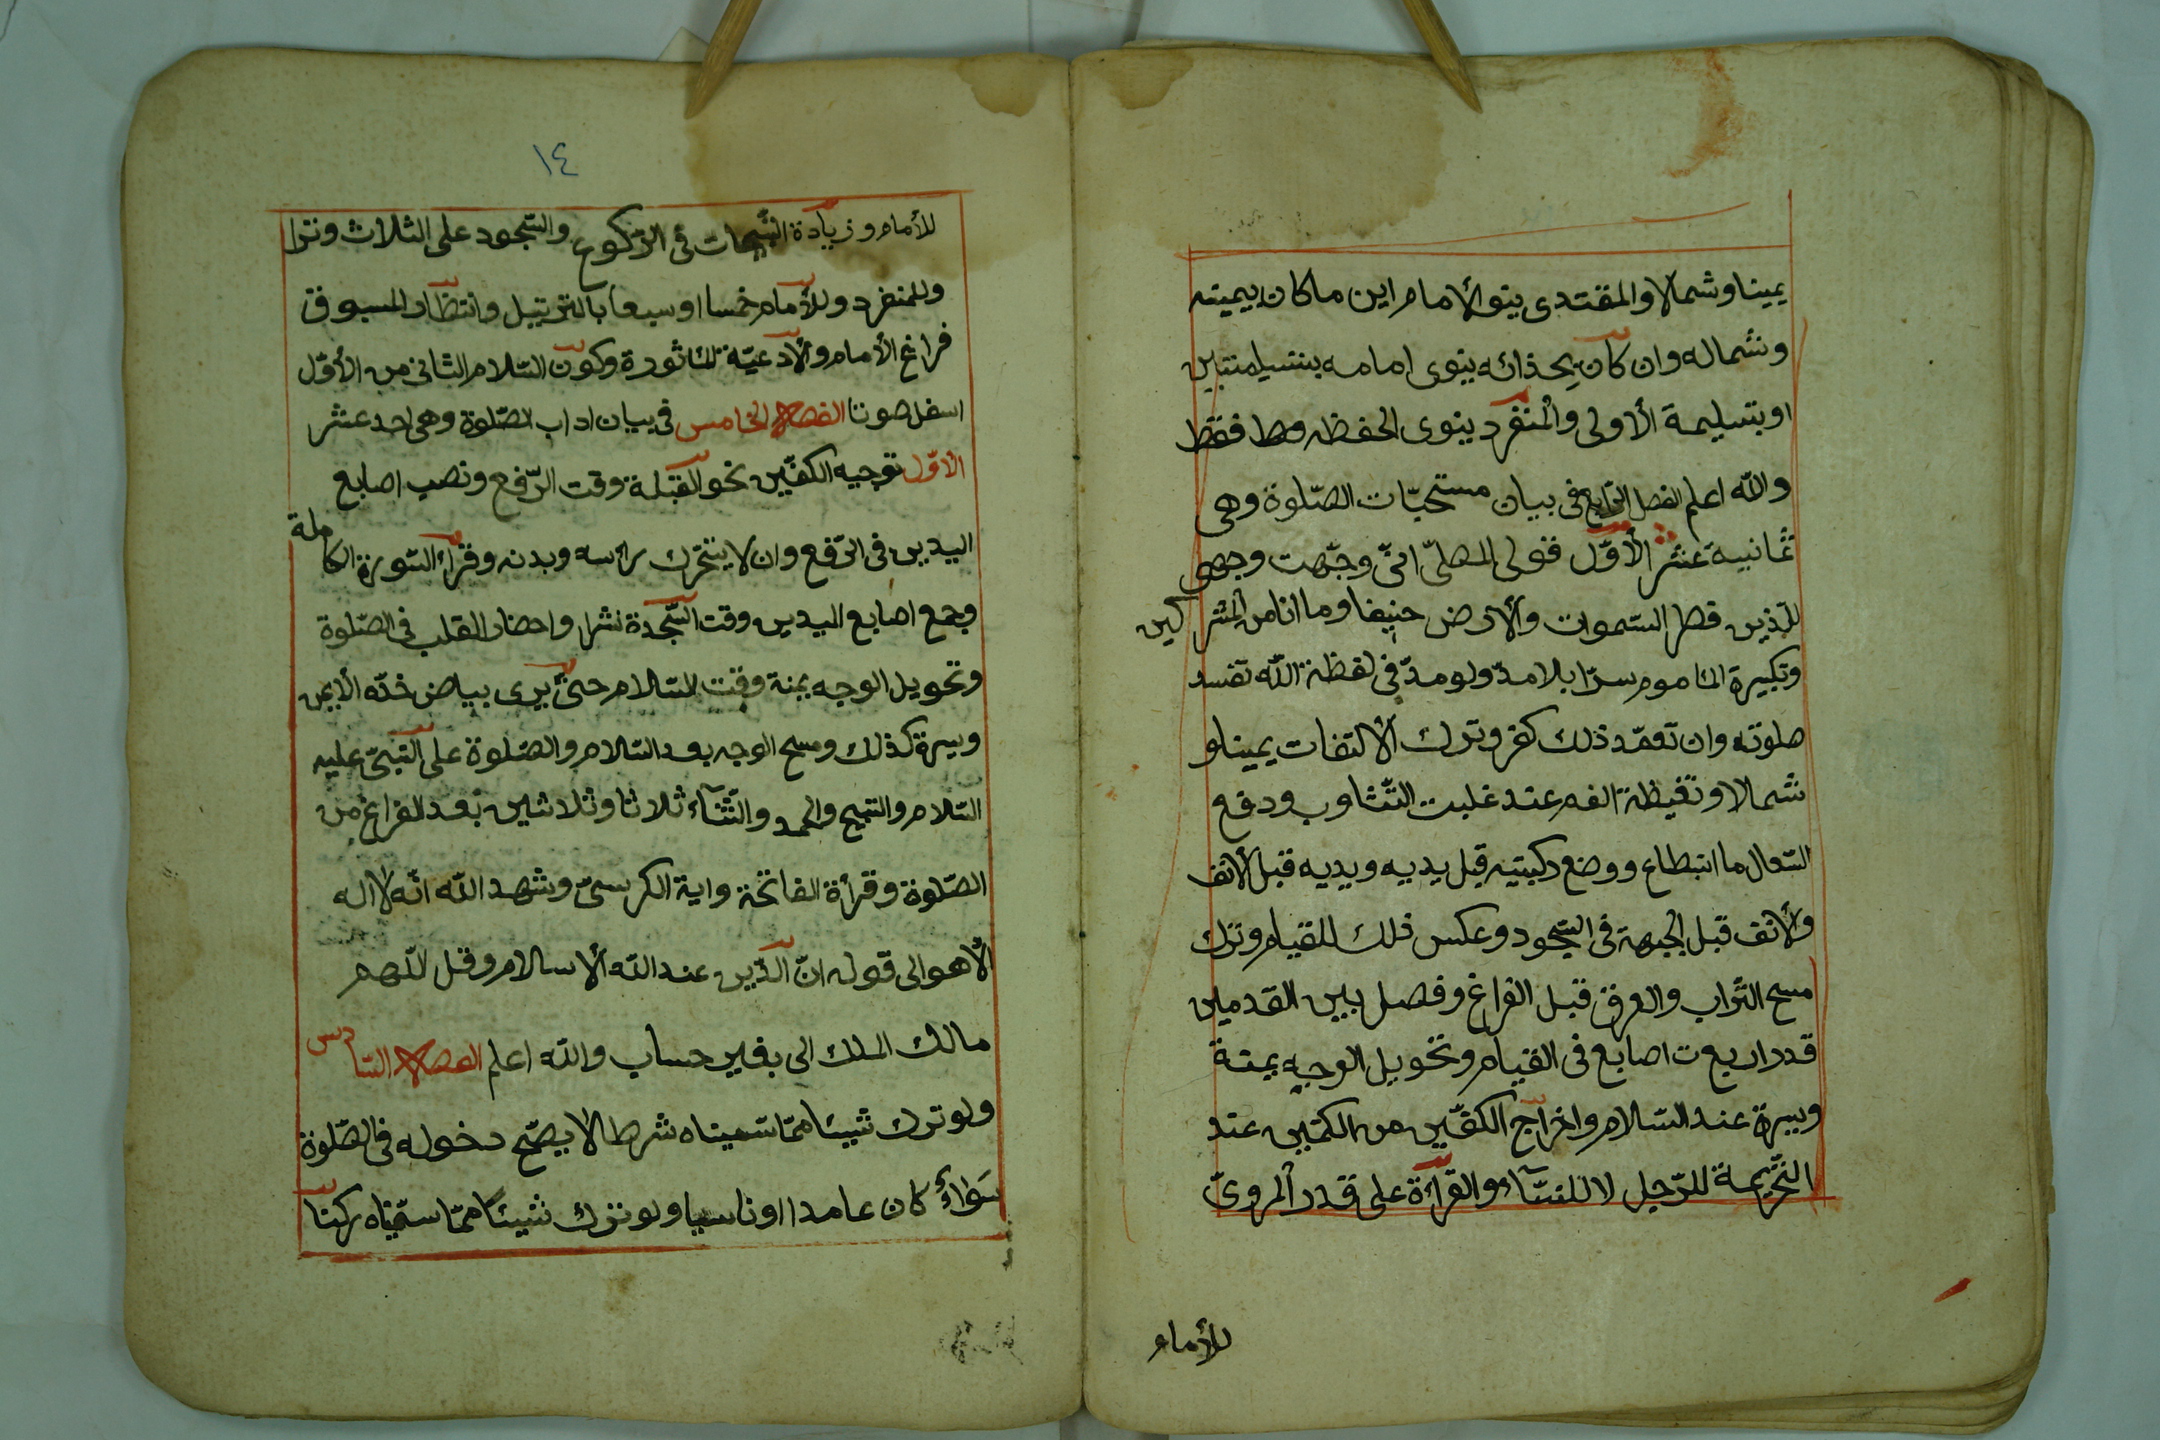 يمينا وشمالا والمقتدى ينو الأمام اين ما كان بيمينه
وشماله وان كان بحذائه ينوى امامه بتسليمتين
او بتسليمة الأولى والمنفرد ينوى الحفظه فقط
والله اعلم الفصل الرابع فى بيان مستحبّات الصّلوة وهى
ثمانية عشر الأوّل قولى المصلّى انّى وجّهت وجهى
للّذين فطر السّموات والأرض حنيفا وما انا من المشركين
وتكبيرة الماموم سرّا بلا مدّ ولو مدّ فى لفظة اللّه تفسد
صلوته وان تعمّد ذلك كفر وترك الألتفات يمينا و
شمالا وتغيظة الفم عند غلبت التّثاوب ودفع
السّعال ما استطاع ووضع ركبتيه قبل يديه ويديه قبل الأنف
والأنف قبل الجبهة فى السّجود وعكس ذلك للقيام وترك
مسح التّراب والعرق قبل الفراغ وفصل بين القدمين
قدر اربعت اصابع فى القيام وتحويل الوجه يمنة
ويسرة عند السّلام واخراج الكفّين من الكمّين عند
التّحريمة للرّجل لا للنسّآء والقرأة على قدر المروىّ
للأمام
١٤
للأمام وزيادة التّسبيحات فى الرّكوع والسّجود على الثلاث وترا
وللمنفرد وللأمام خمسا او سبعا بالترتيل وانتظار المسبوق
فراغ الأمام والأدعيّة المأثورة وكون السّلام الثانى من الأوّل
اسفل صوتا الفصل الخامس فى بيان اداب الصّلوة وهى احد عشر
الأوّل توجيه الكفّين نحو القبلة وقت الرّفع ونصب اصابع
اليدين فى الرّفع وان لا يتحّرك رأسه وبدنه وقرأ السّورة الكاملة
وجمع اصابع اليدين وقت السّجدة نشرا واحضار القلب فى الصّلوة
وتحويل الوجه يمنة وقت السّلام حتىّ يرى بياض خدّه الأيمن
ويسرة كذلك ومسح الوجه بعد السّلام والصّلوة على النّبىّ عليه
السّلام والتسبيح والحمد والثّنآء ثلاثا وثلاثين بعد الفراغ من
الصّلوة وقرأة الفاتحة واية الكرسىّ وشهد اللّه انّه لا اله
الّا هو الى قوله انّ الدّين عند اللّه الأسلام وقل اللّهم
مالك الملك الى بغير حساب واللّه اعلم الفصل السّادس
ولو ترك شيئا ممّا سّميناه شرطا لا يصّح دخوله فى الصّلوة
سَوَاءٌ كان عامدا او ناسيا ولو ترك شيئًا ممّا سمّيناه ركنا